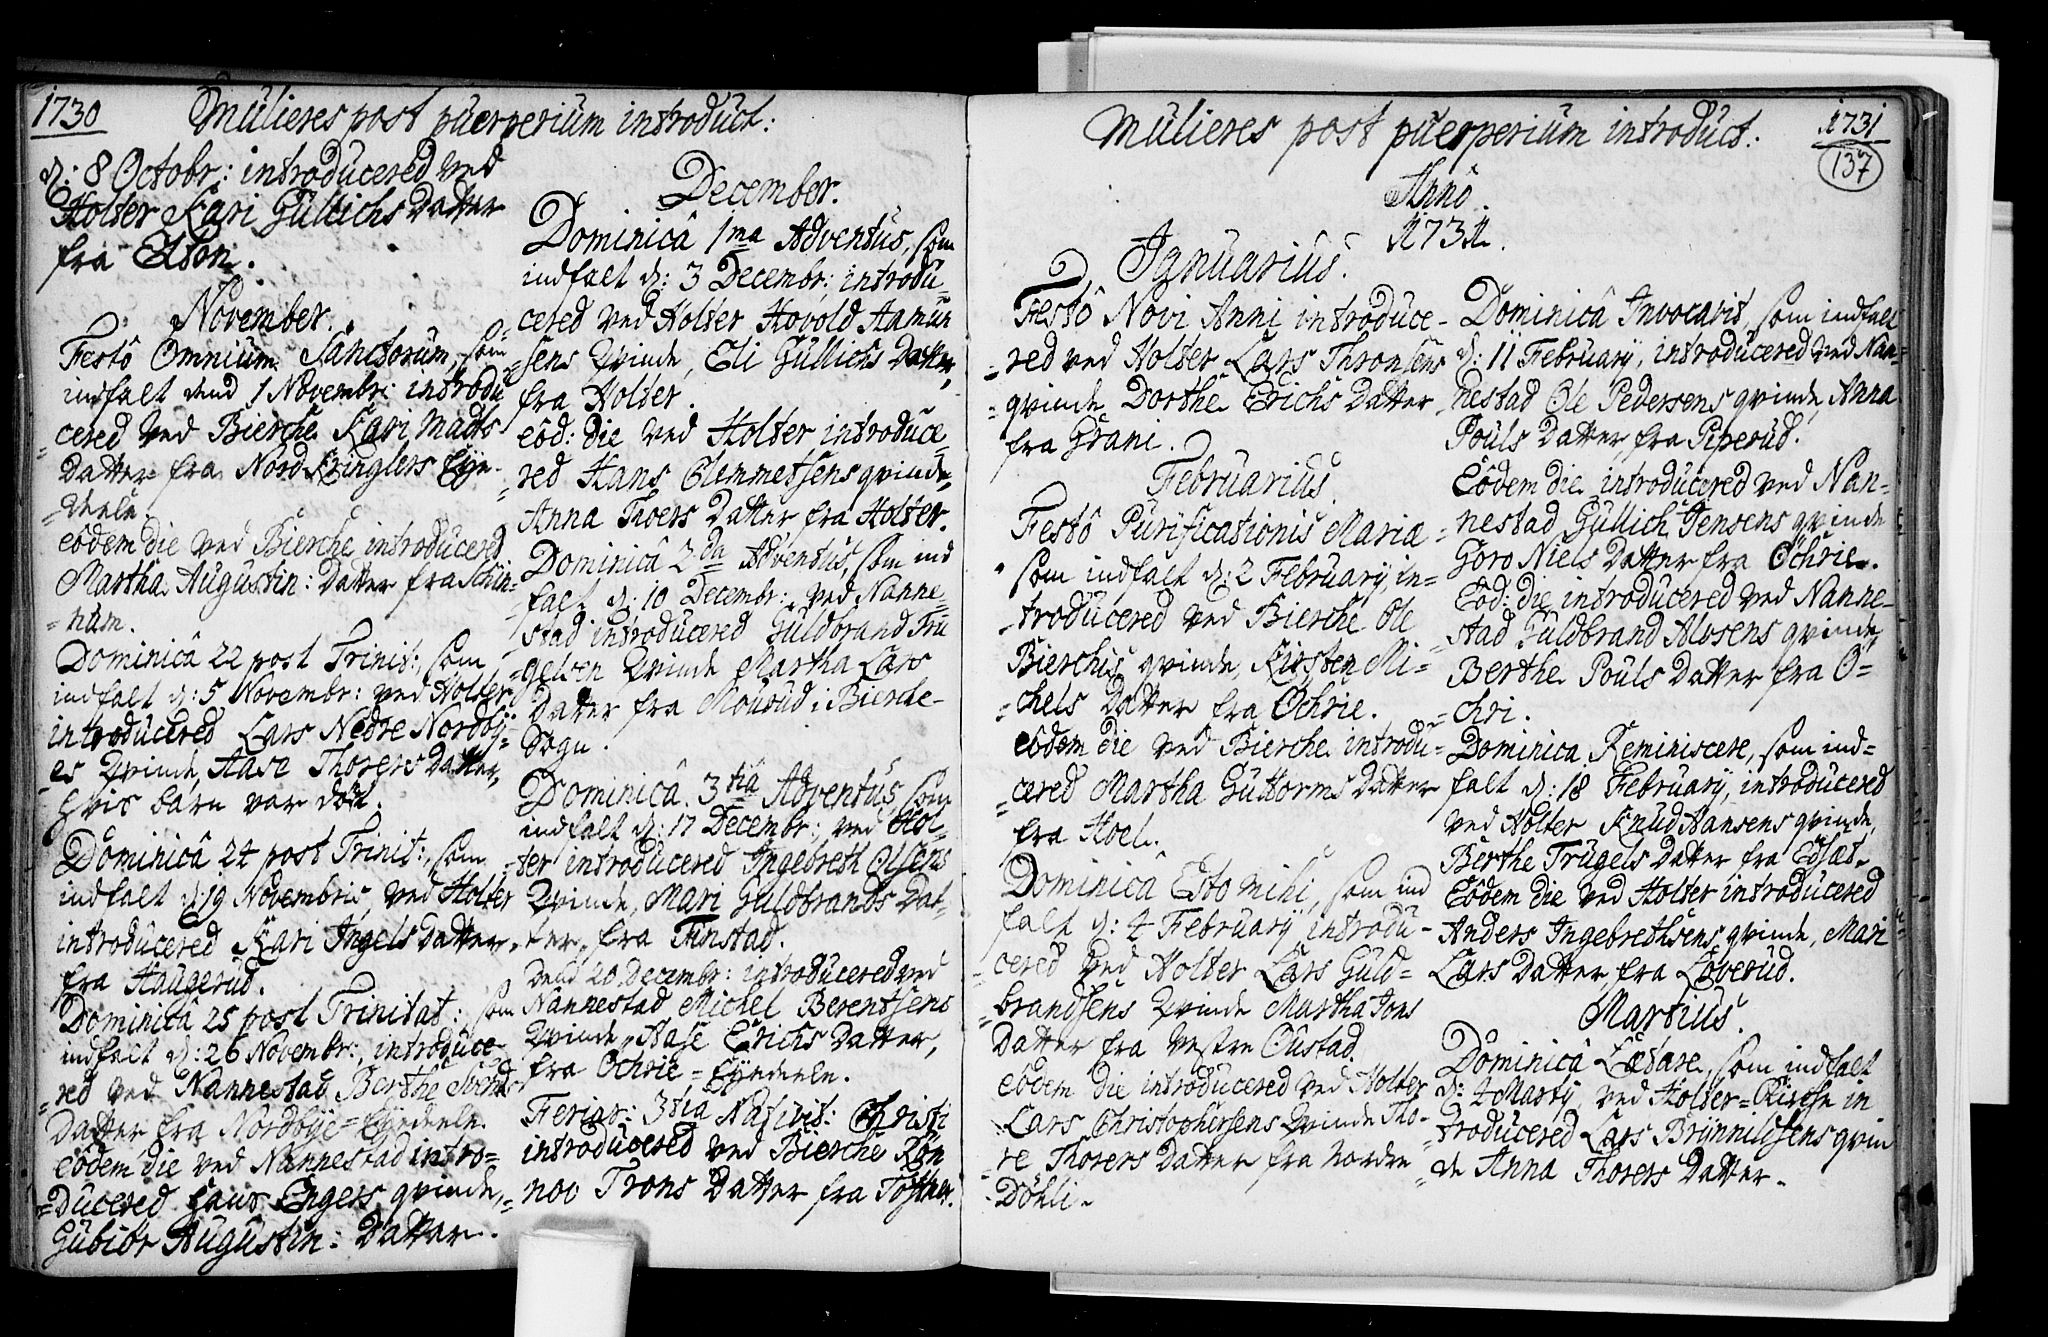 1730
Mulieres post puerperium introduct:
d: 8 Octobr: introducered ved
Holter Kari Gullichs Datter
fra Elton.
November.
Festô Omnium Sanctorum, som
indfalt dend 1 Novembr: introdu
=cered ved Bierche Kari Madts
Datter fra Nord Kringlers Eye-
=deele.
eôdem die ved Bierche introducered
Martha Augustin: Datter fra Schin-
=num.
Dominicâ 22 post Trinit:, som
indfalt d: 5 Novembr: ved Holter
introducered Lars Nedre Nordbÿ=
=es Qvinde, Aase Thorers Datter,
hvis barn var död.
Dominicâ 24 post Trinit:, som
indfalt d: 19 Novembris, ved Holter
introducered Kari Ingels Datter
fra Haugerud.
Dominicâ 25 post Trinitat: som
indfalt d: 26 Novembr:, introduce-
=red ved Nannestad Berthe Svends
Datter fra Nordbye=Eyedeele.
eôdem die ved Nannestad intro=
=ducered Hans Engers qvinde,
Gubiör Augustin: Datter.
December.
Dominicâ 1ma Adventus, som
indfalt d: 3 Decembr: introdu=
cered ved Holter Hovold Aamun
=sens Qvinde, Eli Gullichs Datter,
fra Holter.
eôd: die ved Holter introduce
=red Hans Clemmetsens qvinde,
Anna Thoers Datter fra Holter.
Dominicâ 2da Adventus, som ind
falt d: 10 Decembr: ved Nanne=
stad introducered Guldbrand Tru
=gelsen Qvinde Martha Lars
Datter fra Mourud i Bierche-
Sogn.
Dominicâ 3tiâ Adventus, som
indfalt d: 17 Decembr: ved Hol=
=ter introducered Ingebreth Olsens
Qvinde, Mari Guldbrands Dat-
=ter, fra Finstad.
Dend 20 Decembr: introducered ved
Nannestad Michel Berentsens
Qvinde, Aase Erichs Datter,
fra Ochrie=Eyedeele.
Feriar: 3tia Nativit: Christi
introducered ved Bierche Rön
=nov Trons Datter fra Tösther.
1731
137
Mulieres post puerperium introduct:
Annô
1731.
Januarius.
Festô Novi Anni introduce-
=red ved Holter Lars Thronsens
=qvinde Dorthe Erichs Datter
fra Grani.
Februarius.
Festô Purificationis Maria
som indfalt d: 2 Februarÿ, in=
=troducered ved Bierche Ole
Bierchis qvinde, Kirsten Mi=
=chels Datter fra Ochrie.
eôdem die ved Bierche introdu=
=cered Martha Guttorms Datter
fra Hoel.
Dominicâ Esto mihi, som ind
falt d: 4 Februarÿ introdu-
=cered ved Holter Lars Guld=
=brandsens Qvinde Martha Jons
Datter fra Vestre Oustad.
eôdem die introducered ved Holter
Lars Christophersens Qvinde Tho-
=re Thorers Datter fra Nordre
Döhli.
Dominicâ Invocavit, som indfalt
d: 11 Februarÿ, introducered ved Nan=
=nestad Ole Pedersens qvinde, Anna
Pouls Datter, fra Piperud.
Eôdem die introducered ved Nan=
=nestad Gullich Jensens qvinde
Goro Niels Datter fra Ochrie.
Eôd: die introducered ved Nanne-
stad Guldbrand Alvsens qvinde,
Berthe Pouls Datter fra O=
=chri.
Dominica Reminiscere, som ind=
falt d: 18 Februarÿ, introducered
ved Holter Knud Hansens qvinde,
Berthe Trugels Datter, fra Edsat.
Eôdem die ved Holter introducered
Anders Ingebrethsens qvinde, Mari
Lars Datter, fra Loverud.
Martius.
Dominicâ Lætare, som indfalt
d: 4 Martÿ, ved Holter=Kirche in
=troducered Lars Brynnildsens qvin
=de Anna Thorers Datter.